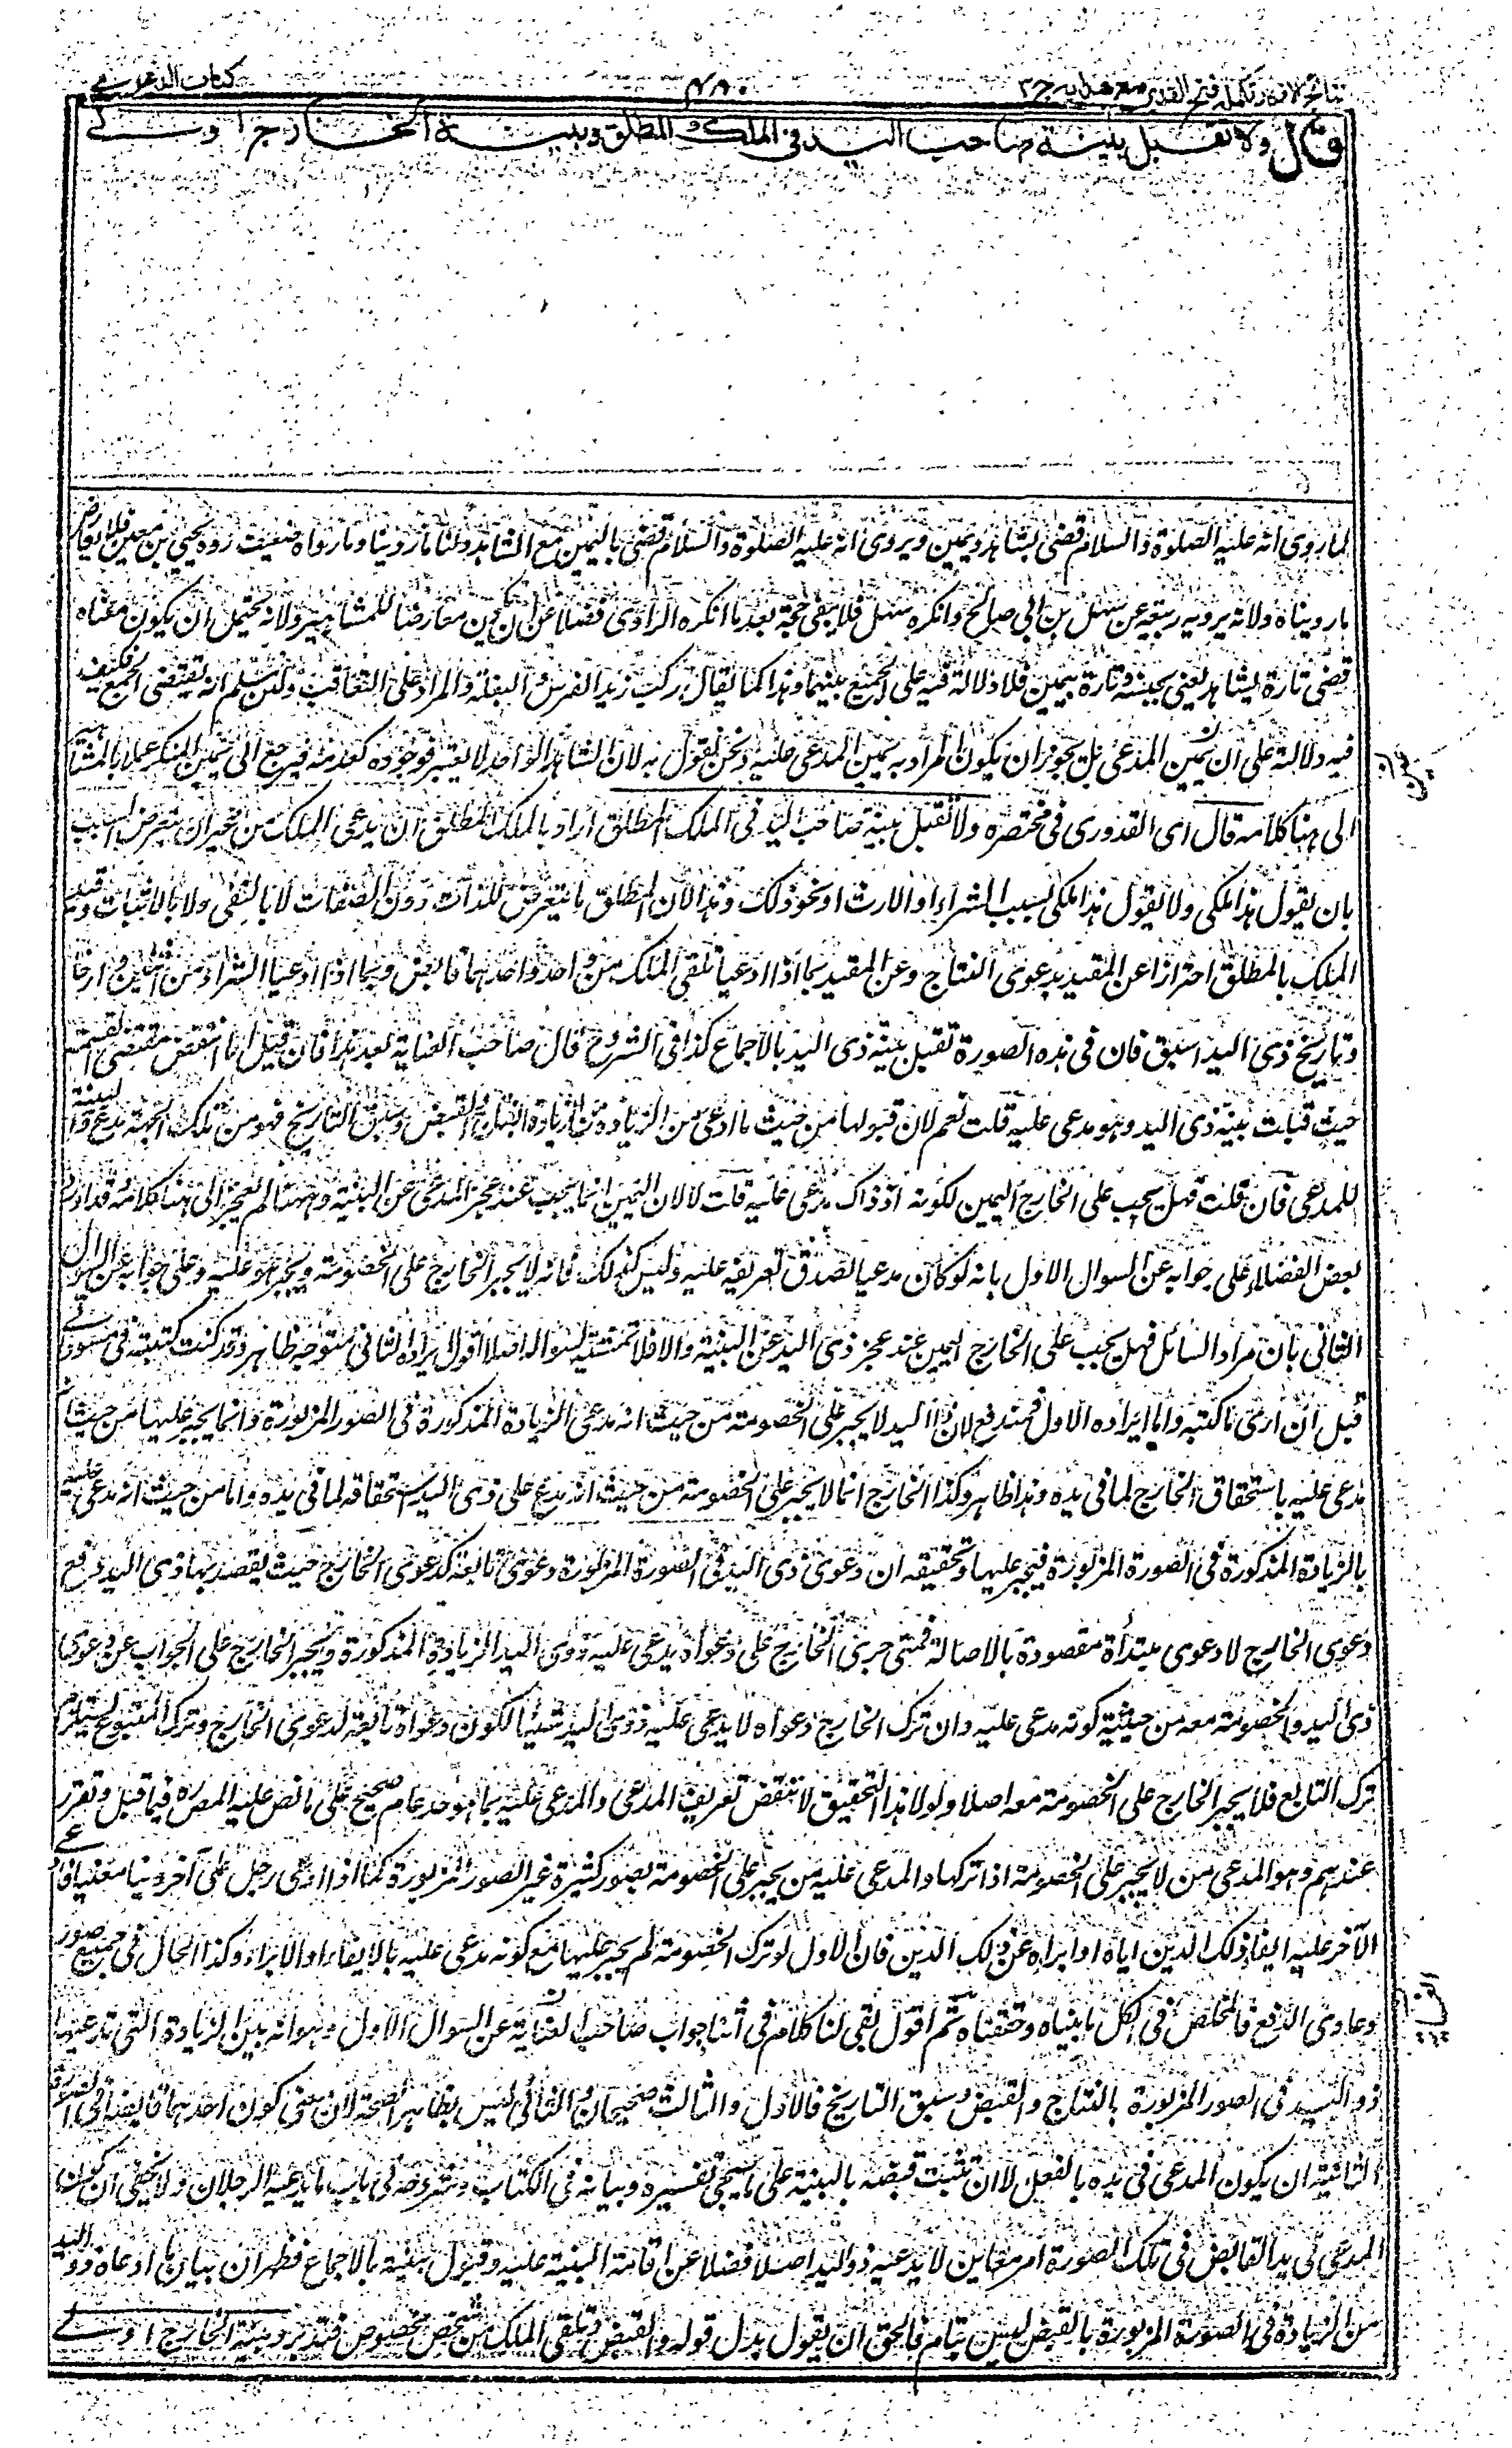 نتائج الافكار تكملة فتح القدير مع هدايه ج ٣
٤٨٠
كتاب الدعوى
قال ولا تقبل بينة صاحب اليد في الملك المطلق وبينة الخارج اولى
لما روى انه عليه الصلوة والسلام قضى بشاهد ويمين ويروى انه عليه الصلوة والسلام قضى باليمين مع الشاهد ولنا ما روينا وما رواه ضعيف رده يحيى بن معين فلا يعارض
ما رويناه ولانه يرويه ربيعة عن سهل بن ابى صالح وانكره سهل فلا يبقى حجة بعد ما انكره الراوى فضلا عن ان يكون معارضا للمشاهير ولانه يحتمل ان يكون معناه
قضى تارة بشاهد يعنى بجنسه وتارة بيمين فلا دلالة فيه على الجمع بينهما وهذا كما يقال ركب زيد الفرس والبغلة والمراد على التعاقب ولئن سلم انه يقتضى الجمع فكيف
فيه دلالة على ان يمين المدعى بل يجوز ان يكون المراد به يمين المدعى عليه ونحن نقول به لان الشاهد الواحد لا يعتبر فوجوده كعدمه فيرجع الى يمين المنكر عملا بالمشاهير
الى هنا كلامه قال اى القدورى فى مختصره ولا تقبل بينة صاحب اليد فى الملك المطلق اراد بالملك المطلق ان يدعى الملك من غير ان يتعرض للسبب
بان يقول هذا ملكى ولا يقول هذا ملكى بسبب الشراء او الارث او نحو ذلك وهذا لان المطلق ما يتعرض للذات دون الصفات لا بالنفى ولا بالاثبات وقيد
الملك بالمطلق احترازا عن المقيد بدعوى النتاج وعن المقيد بما اذا ادعيا تلقى الملك من واحد واحدهما قابض وبما اذا ادعيا الشراء من اثنين وارخا
وتاريخ ذى اليد اسبق فان فى هذه الصورة تقبل بينة ذى اليد بالاجماع كذا فى الشروح قال صاحب العناية بعد هذا فان قيل اما انتقض مقتضى القسمة
حيث قبلت بينة ذى اليد وهو مدعى عليه قلت نعم لان قبولها من حيث ما ادعى من الزيادة من زيادة النتاج والقبض وسبق التاريخ فهو من تلك الجهة مدع والبينة
للمدعى فان قلت فهل يجب على الخارج اليمين لكونه اذ ذاك مدعى عليه قلت لا لان اليمين انما يجب عند عجز المدعى عن البينة وههنا لم يعجز الى هنا كلامه وقد اورد
بعض الفضلاء على جوابه عن السوال الاول بانه لو كان مدعيا لصدق تعريفه عليه وليس كذلك فانه لا يجبر الخارج على الخصومة ويجبر هو عليه وعلى جوابه عن السوال
الثانى بان مراد السائل فهل يجب على الخارج اليمين عند عجز ذى اليد عن البينة والا فلا تمشية لسواله اصلا اقول ايراده الثانى متوجه ظاهر وقد كنت كتبته فى مسودا
قبل ان ارى ما كتبه واما ايراده الاول فمندفع لان ذا اليد لا يجبر على الخصومة من حيث انه مدعى الزيادة المذكورة فى الصور المزبورة وانما يجبر عليها من حيث انه
مدعى عليه باستحقاق الخارج لما فى يده وهذا ظاهر وكذا الخارج انما لا يجبر على الخصومة من حيث انه مدع على ذى اليد استحقاقه لما فى يده واما من حيث انه مدعى عليه
بالزيادة المذكورة فى الصورة المزبورة فيجبر عليها وتحقيقه ان دعوى ذى اليد فى الصورة المزبورة دعوى تابعة لدعوى الخارج حيث يقصد بها ذى اليد دفع
دعوى الخارج لا دعوى مبتدأة مقصودة بالاصالة فمتى جرى الخارج على دعواه يدعى عليه ذوى اليد الزيادة المذكورة ويجبر الخارج على الجواب عن دعوى
ذى اليد والخصومة معه من حيثية كونه مدعى عليه وان ترك الخارج دعواه لا يدعى عليه ذوى اليد شيئا لكون دعواه تابعة لدعوى الخارج وترك المتبوع يستلزم
ترك التابع فلا يجبر الخارج على الخصومة معه اصلا ولولا هذا التحقيق لانتقض تعريف المدعى والمدعى عليه بما هو حد عام صحيح على ما نص عليه المصره فيما قبل وتقرر
عندهم وهو المدعى من لا يجبر على الخصومة اذا تركها والمدعى عليه من يجبر على الخصومة بصور كثيرة غير الصور المزبورة كما اذا ادعى رجل على آخر دينا معينا فادعى
الآخر عليه ايفاء ذلك الدين اياه او ابراه عن ذلك الدين فان الاول لو ترك الخصومة لم يجبر عليها مع كونه مدعى عليه بالايفاء او الابراء وكذا الحال فى جميع صور
دعاوى الدفع فالمخلص فى الكل ما بيناه وحققناه ثم اقول بقى لنا كلام فى اثنا جواب صاحب العناية عن السوال الاول وهو انه بين الزيادة التى يدعيها
ذو اليد فى الصور المزبورة بالنتاج والقبض وسبق التاريخ فالاول والثالث صحيحان والثانى ليس بظاهر الصحة لان معنى كون احدهما قابضا فى الصورة
الثانية ان يكون المدعى فى يده بالفعل لا ان تثبت قبضه بالبينة على ما سيجئ تفسيره وبيانه فى الكتاب وشروحه فى باب ما يدعيه الرجلان ولا يخفى ان كون
المدعى فى يد القابض فى تلك الصورة امر معاين لا يدعيه ذو اليد اصلا فضلا عن اقامة البينة عليه وقبول بينته بالاجماع فظهر ان بيان ما ادعاه ذو اليد
من الزيادة فى الصورة المزبورة بالقبض ليس بتام فالحق ان يقول بدل قوله والقبض وتلقى الملك من شخص مخصوص فتدبر وبينة الخارج اولى